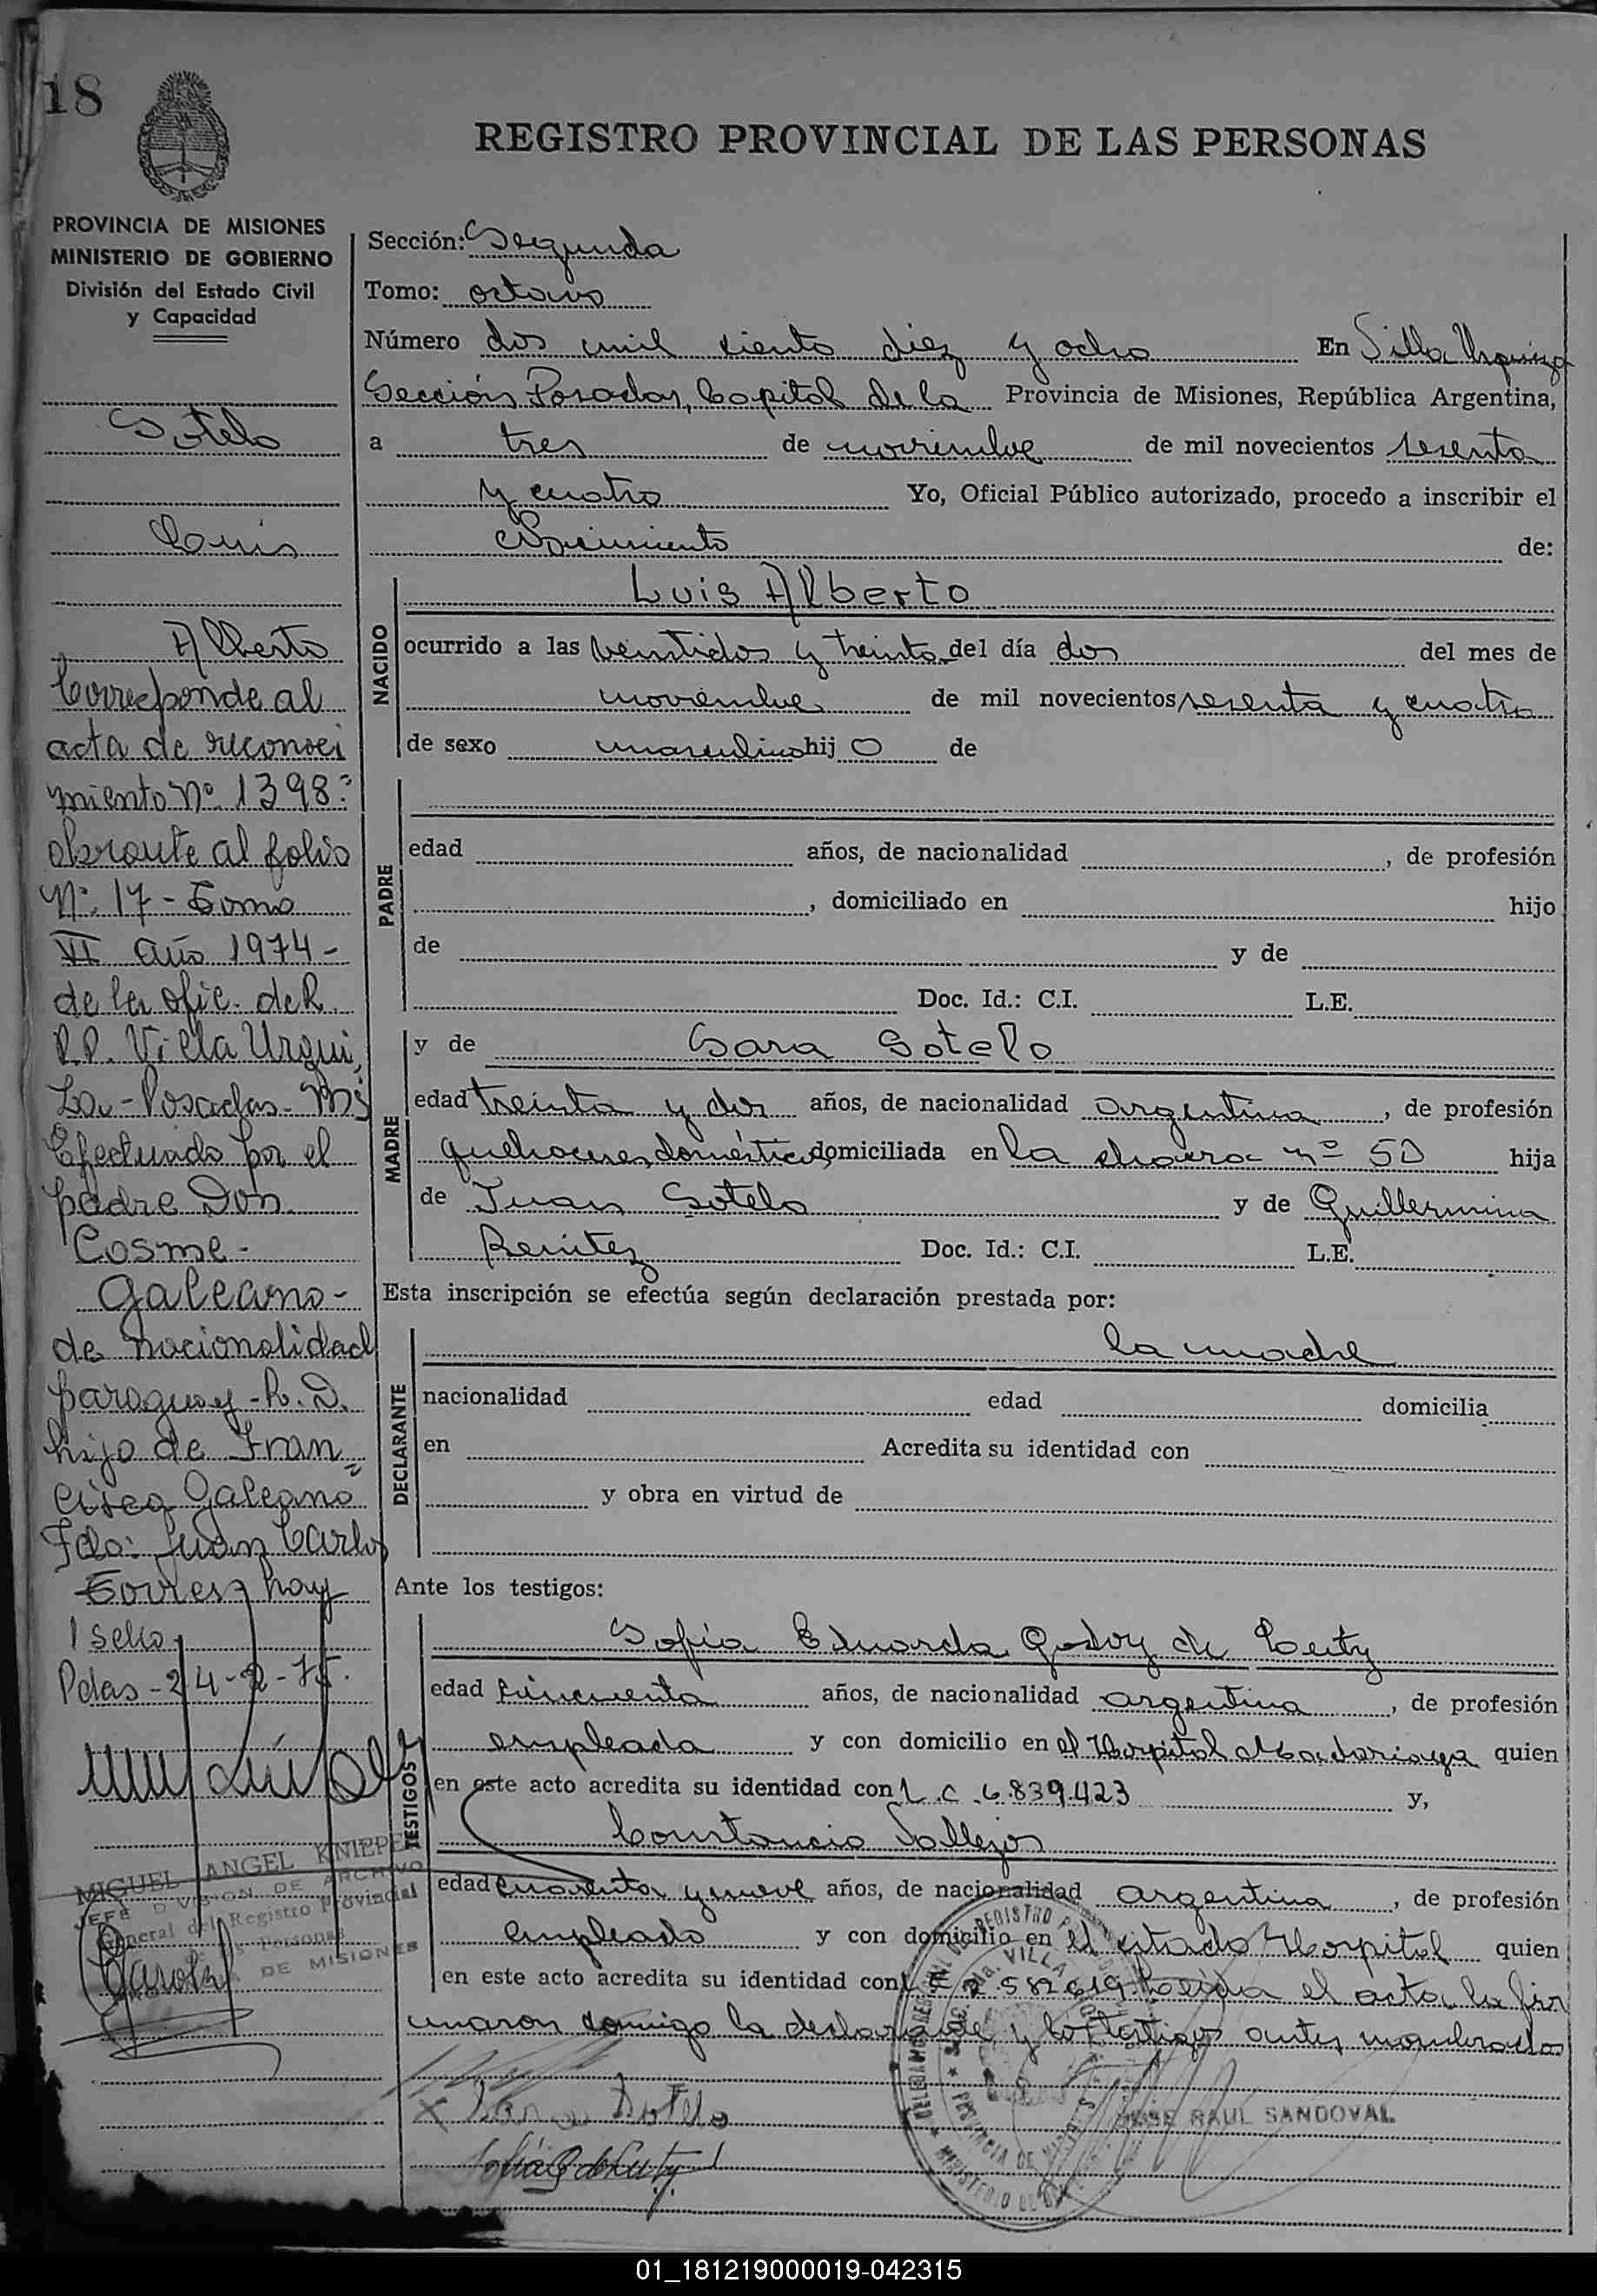 18
REGISTRO PROVINCIAL DE LAS PERSONAS
PROVINCIA DE MISIONES
MINISTERIO DE GOBIERNO
División del Estado Civil
y Capacidad
Sotelo
Luis
Alberto
Corresponde al
acta de reconoci
miento Nº 1398=
obrante al folio
Nº 17 - Tomo
VI año 1974 -
de la ofic. de R.
P.P. Villa Urqui
za - Posadas - Ms
Efectuado por el
padre Don
Cosme -
Galeano -
de nacionalidad
paraguay -
hijo de Fran=
cisca Galeano
Fdo: Juan Carlos
Torres, hay
1 sello,
Pdas - 24-2-75.
MIGUEL ANGEL KNIEPPE
JEFE DIVISION DE ARCHIVO
General del Registro Provincial
de las Personas
DE MISIONES
Sección: Segunda
Tomo: octavo
Número dos mil ciento diez y ocho En Villa Urquiza
Sección Posadas, Capital de la Provincia de Misiones, República Argentina,
a tres de noviembre de mil novecientos sesenta
y cuatro Yo, Oficial Público autorizado, procedo a inscribir el
Nacimiento de:
NACIDO
Luis Alberto
ocurrido a las veintidos y treinta del día dos del mes de
noviembre de mil novecientos sesenta y cuatro
de sexo masculino hij o de
PADRE
edad años, de nacionalidad , de profesión
, domiciliado en hijo
de y de
Doc. Id.: C.I. L.E.
MADRE
y de Sara Sotelo
edad treinta y dos años, de nacionalidad argentina, de profesión
quehaceres domésticos, domiciliada en la chacra nº 50 hija
de Juan Sotelo y de Guillermina
Benitez Doc. Id.: C.I. L.E.
Esta inscripción se efectúa según declaración prestada por:
DECLARANTE
la madre
nacionalidad edad domicilia
en Acredita su identidad con
y obra en virtud de
Ante los testigos:
TESTIGOS
Sofia Eduarda Godoy de
edad cincuenta años, de nacionalidad argentina, de profesión
empleada y con domicilio en el Hospital Madariaga quien
en este acto acredita su identidad con L.C. 6.839.423 y,
Constancio Vallejos
edad cuarenta y nueve años, de nacionalidad argentina, de profesión
empleado y con domicilio en el citado Hospital quien
en este acto acredita su identidad con L.E. 2.582.619 Leída el acta, la fir
maron conmigo la declarante y los testigos antes nombrados
x Sara Sotelo
JOSE RAUL SANDOVAL
01_181219000019-042315